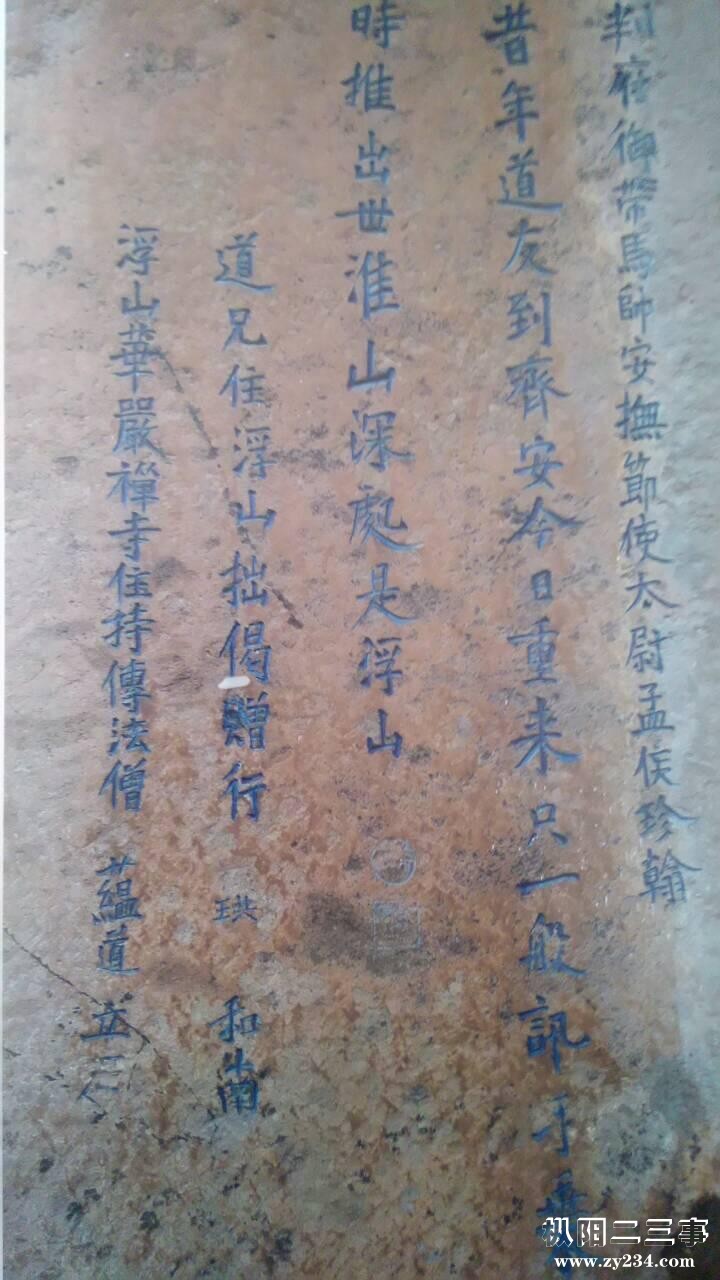 判府御帶馬帥安撫節使太尉孟侯珍翰
昔年道友到齊安今日重来只一般訊手
時推出世淮山深處是浮山
道兄住浮山拙偈贈行 珙 和南
浮山華嚴禪寺住持傳法僧 蘊道 立石
枞阳二三事
www.zy234.com